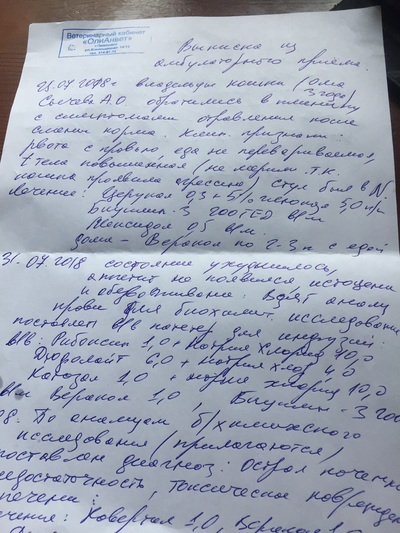 Ветеринарный кабинет
«ОлиАнвет»
Выписка из
амбулаторного приема.
28.07.2018г владельцы кошки (Ома
3 года)
Сычева А.О. обратились в клинику
с симптомами отравления после
смены корма. Клин. признаки:
рвота с кровью, еда не переваривается,
t тела повышенная (не мерили т.к.
кошка проявила агрессию), стул был в N.
Лечение: Церукал 0,3 + 5% глюкоза 5,0 п/к
Бициллин-3 200 ТЕД в/м
Мексидол 0,5 в/м.
дома - Веракол по 2-3 к с едой
31.07.2018 состояние ухудшилось,
аппетит не появился, истощение
и обезвоживание. Взят анализ
крови для биохимич. исследования
поставлен в/в катетер для инфузий.
в/в: Рибоксин 1,0 + натрия хлорид 10,0
Дюфалайт 6,0 + натрия хлор 4,0
Катозал 1,0 + натрия хлорид 10,0
в/м Веракол 1,0, Бициллин-3 200
08. По анализам б/химического
исследования (прилагаются)
поставлен диагноз: Острая почечн
недостаточность, токсическое повреждени
печени.
чения: Ковертал 1,0, Веракол 1,0